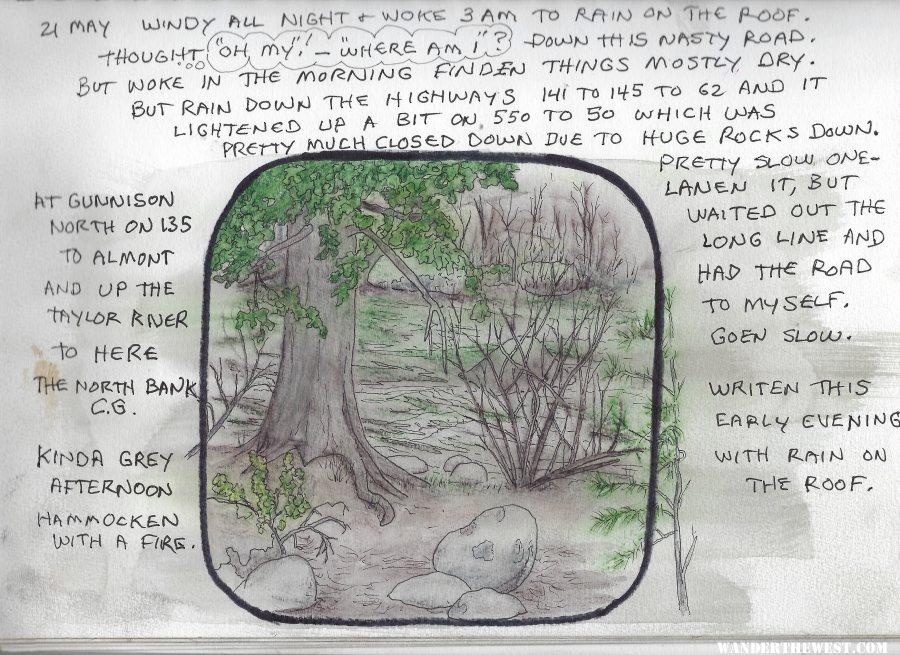 21 MAY WINDY ALL NIGHT & WOKE 3 AM TO RAIN ON THE ROOF.
THOUGHT... "OH MY"! - "WHERE AM I"? DOWN THIS NASTY ROAD.
BUT WOKE IN THE MORNING FINDEN THINGS MOSTLY DRY.
BUT RAIN DOWN THE HIGHWAYS 141 TO 145 TO 62 AND IT
LIGHTENED UP A BIT ON 550 TO 50 WHICH WAS
PRETTY MUCH CLOSED DOWN DUE TO HUGE ROCKS DOWN.
PRETTY SLOW ONE-
LANEN IT, BUT
WAITED OUT THE
LONG LINE AND
HAD THE ROAD
TO MYSELF.
GOEN SLOW.
AT GUNNISON
NORTH ON 135
TO ALMONT
AND UP THE
TAYLOR RIVER
TO HERE
THE NORTH BANK
C.G.
KINDA GREY
AFTERNOON
HAMMOCKEN
WITH A FIRE.
WRITEN THIS
EARLY EVENING
WITH RAIN ON
THE ROOF.
WANDERTHEWEST.COM